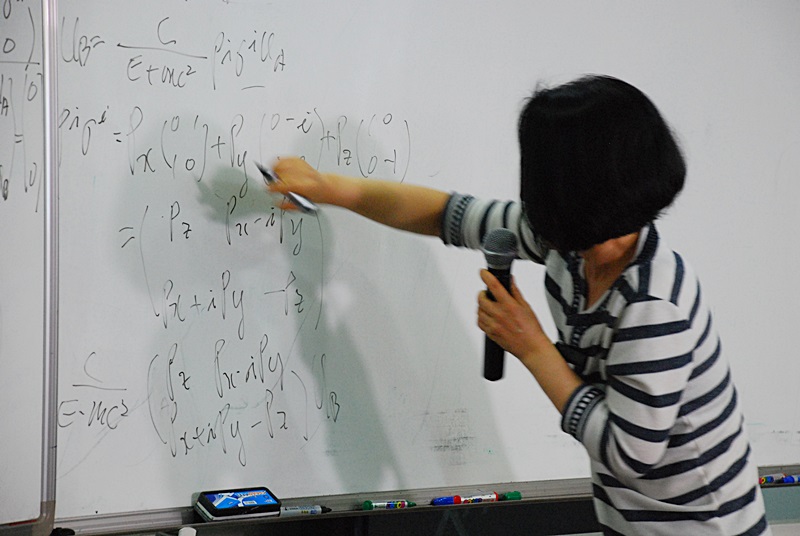 U_B = C/(E+mc²) p_i σ^i U_A
p_i σ^i = P_x (0 1 / 1 0) + P_y (0 -i / ) + P_z (1 0 / 0 -1)
= (P_z P_x-iP_y / P_x+iP_y -P_z)
C/(E-mc²) (P_z P_x-iP_y / P_x+iP_y -P_z) U_B